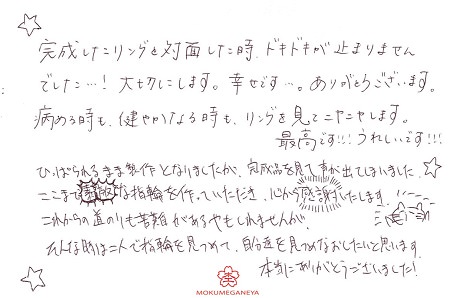 完成したリングと対面した時、ドキドキが止まりません
でした…！大切にします。幸せです…。ありがとうございます。
病める時も、健やかなる時も、リングを見てニヤニヤします。
最高です!!! うれしいです!!!
ひっぱられるまま製作となりましたが、完成品を見て声が出てしまいました。
ここまで素敵な指輪を作っていただき、心から感謝いたします。
これからの道のりも苦難があるやもしれませんが、
そんな時は二人で指輪を見つめて、自分達を見つめなおしたいと思います。
本当にありがとうございました！
MOKUMEGANEYA